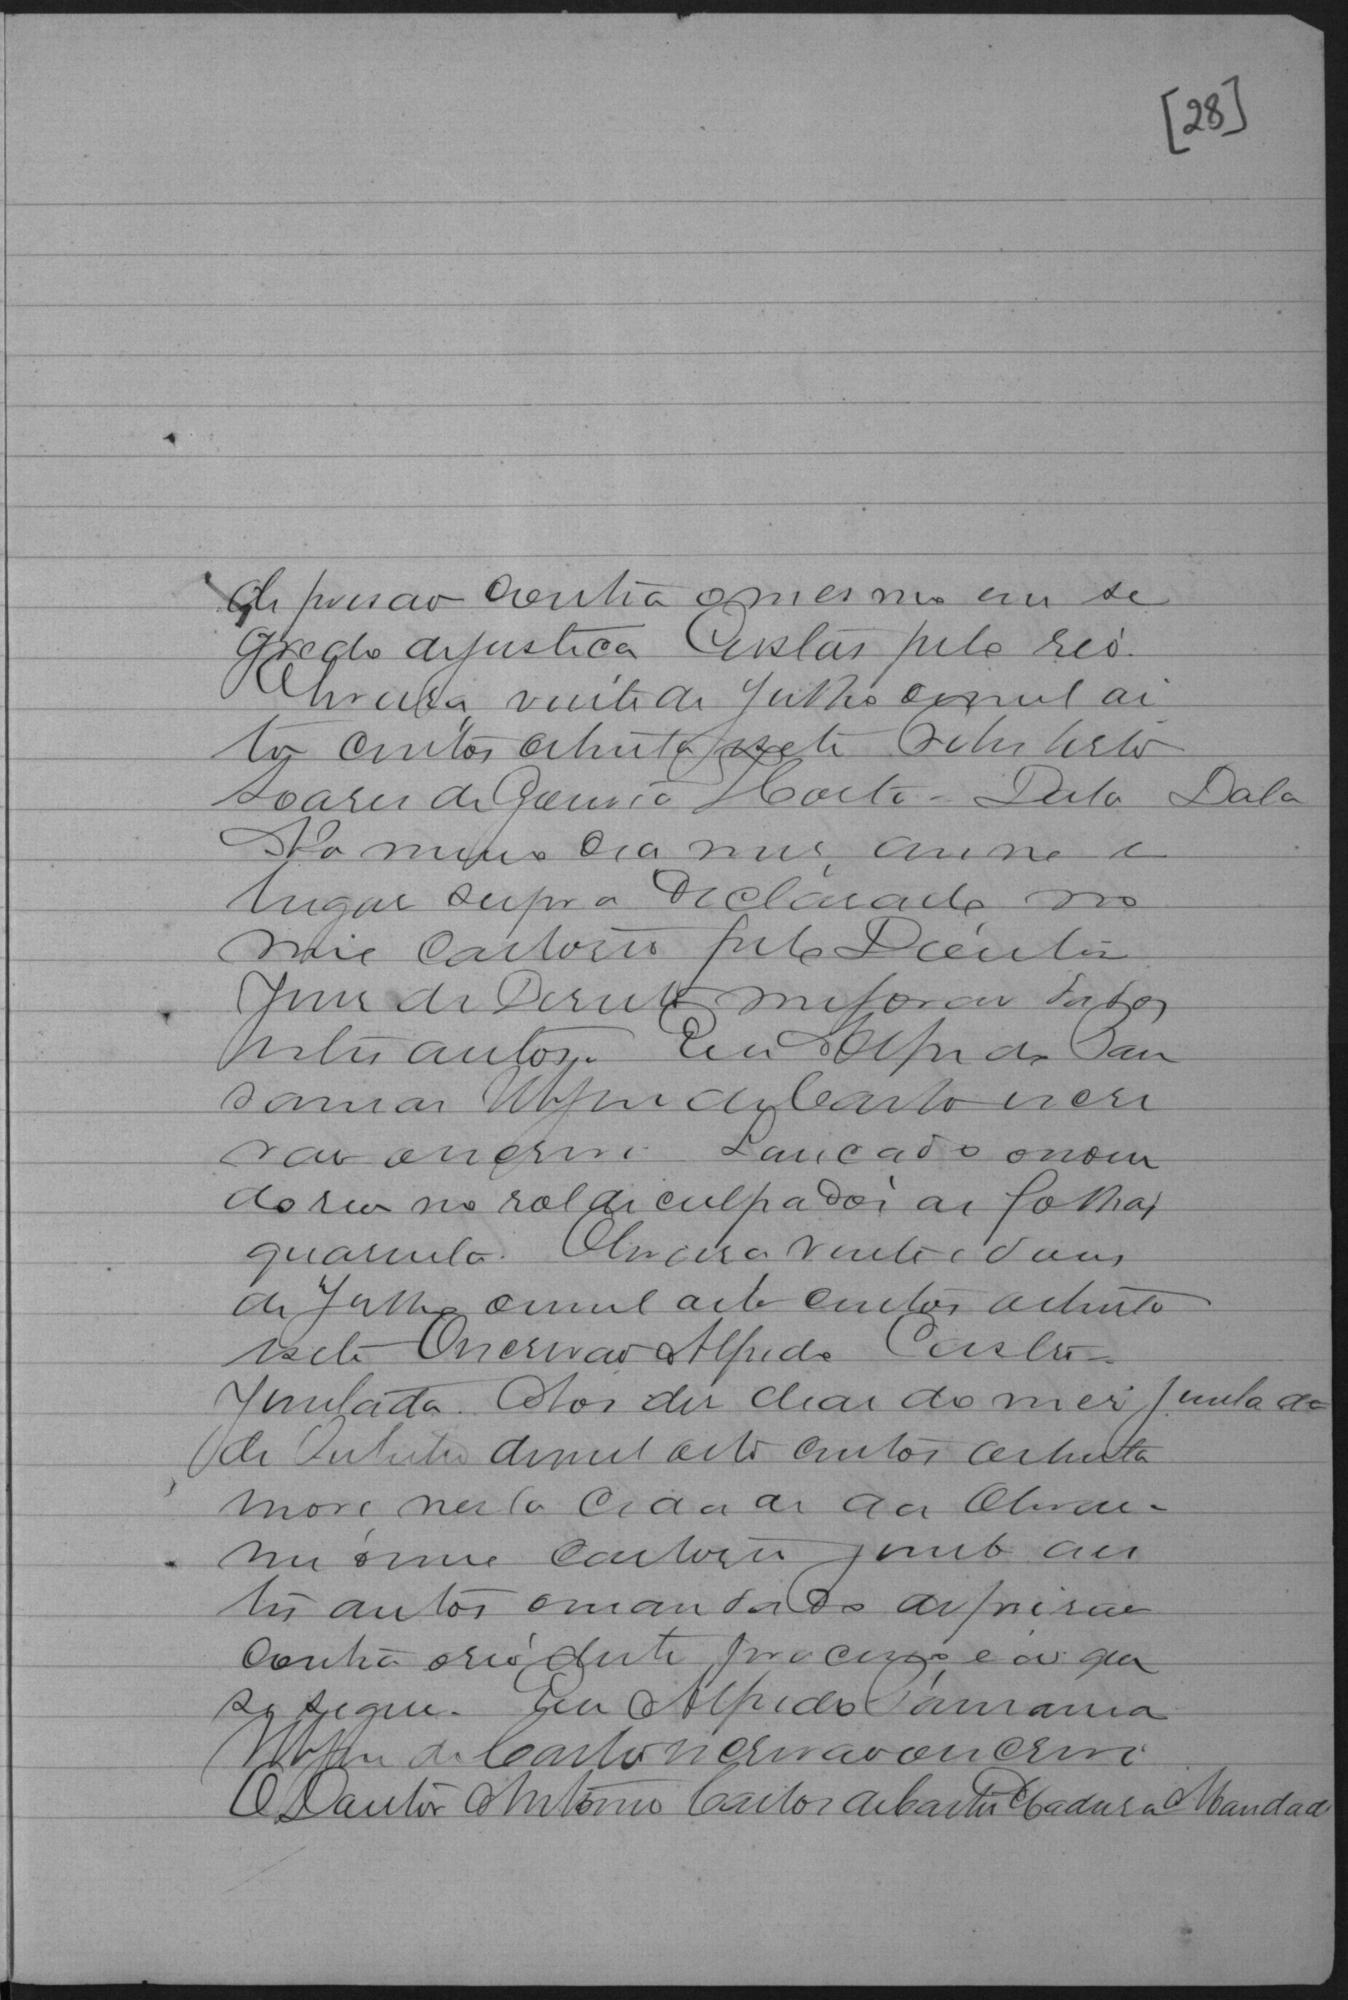 [28]
de prisao contra o mesmo em se
gredo de justica Custas pelo reo.
Oliveira, vinte de Julho de mil oi
to centos oitenta sete
Soares de Gouvea Horta - Data Data
No mesmo dia mes, anno e
lugar supra declarado no
meu cartorio pelo Doutor
Juis de Direito me forao dados
estes autos. Eu Alfredo
de Castro escri
vao escrevi Lancado o nome
do reu no rol de culpados as folhas
quarenta. Oliveira vinte e dous
de Julho de mil oito centos oitenta
sete O escrivao Alfredo Castro -
Juntada. Aos dez dias do mes Juntada
de Outubro de mil oito centos oitenta
nove nesta cidade de Oliveira
em o meu cartorio junto a es
tes autos o mandado de prisao
contra o reo deste processo e o que
se segue. Eu Alfredo
de Castro escrivao o escrevi
O Doutor Antonio Carlos de Castro Madura Mandad